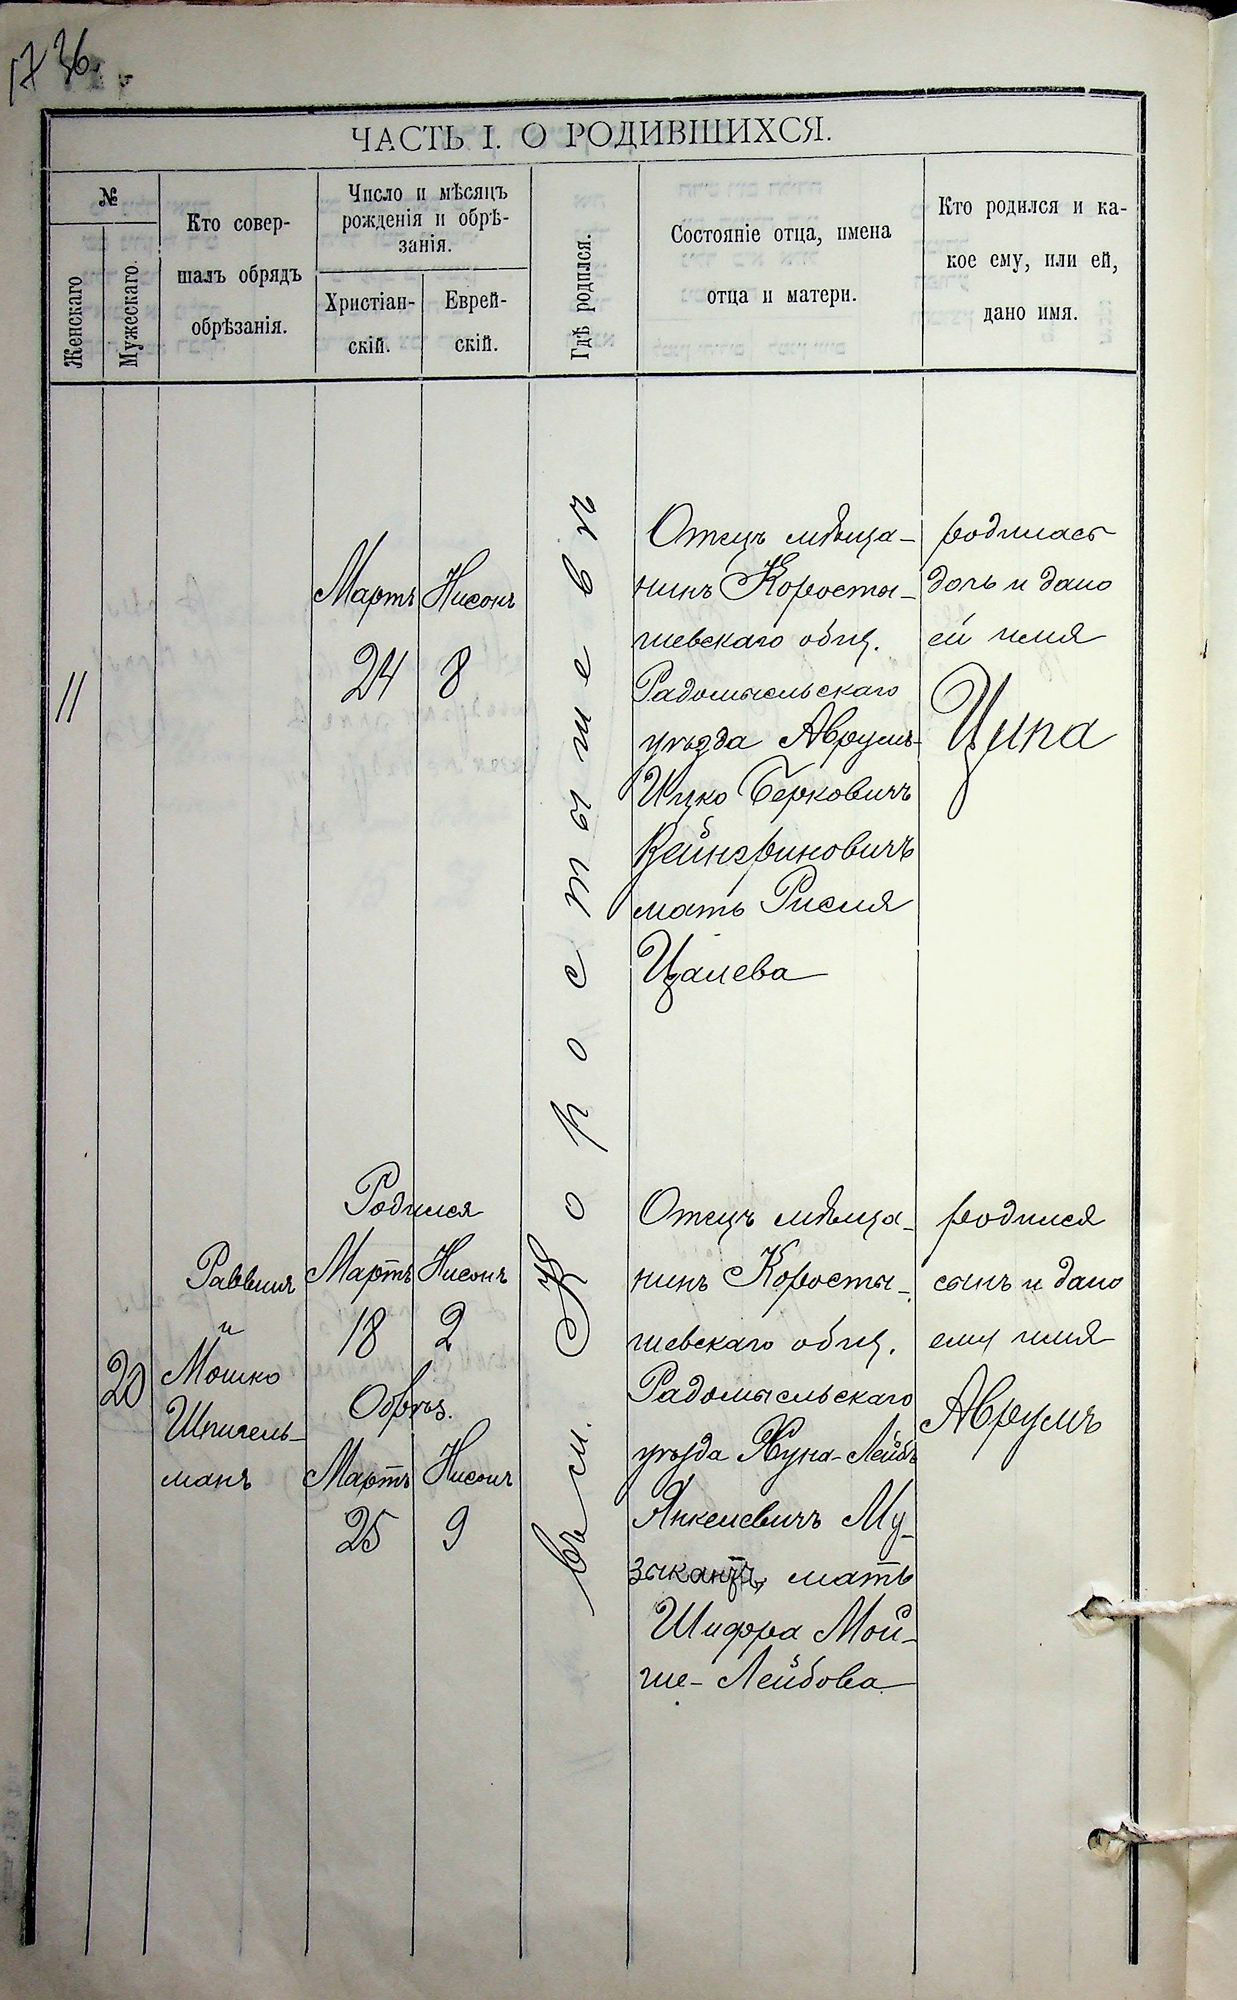 1736.
ЧАСТЬ I. О РОДИВШИХСЯ.
№
Женскаго
Мужескаго.
Кто совер-
шалъ обрядъ
обрѣзанія.
Число и мѣсяцъ
рожденія и обрѣ-
занія.
Христіан-
скій.
Еврей-
скій.
Гдѣ родился.
Состояніе отца, имена
отца и матери.
Кто родился и ка-
кое ему, или ей,
дано имя.
11
Мартъ
24
Нисонъ
8
въ м. Коростышевъ
Отецъ мѣща-
нинъ Коросты-
шевскаго общ.
Радомысльскаго
уѣзда Аврумъ-
Ицко Берковичъ
Вейнериновичъ
мать Рисия
Цалева
родилась
дочь и дано
ей имя
Ципа
20
Раввинъ
и
Мошко
Шпигель-
манъ
Родился
Мартъ Нисонъ
18 2
Обрѣз.
Мартъ Нисонъ
25 9
Отецъ мѣща-
нинъ Коросты-
шевскаго общ.
Радомысльскаго
уѣзда Хуна-Лейбъ
Янкелевичъ Му-
зыкантъ, мать
Шифра Мой-
ше-Лейбова
родился
сынъ и дано
ему имя
Аврумъ